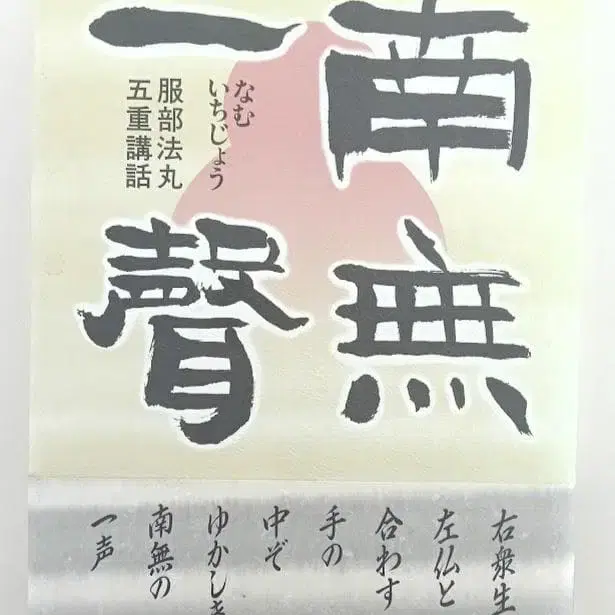 南無
一聲
なむ
いちじょう
服部法丸
五重講話
右衆生
左仏と
合わす
手の
中ぞ
ゆかしき
南無の
一声